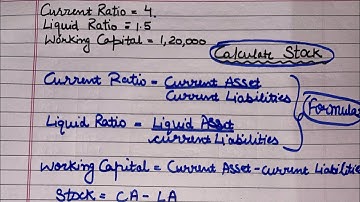 Current Ratio = 4.
Liquid Ratio = 1.5
Working Capital = 1,20,000
Calculate Stock
Current Ratio = Current Asset
Current Liabilities
Formulas
Liquid Ratio = Liquid Asset
current Liabilities
Working Capital = Current Asset - current Liabilities
Stock = CA - LA